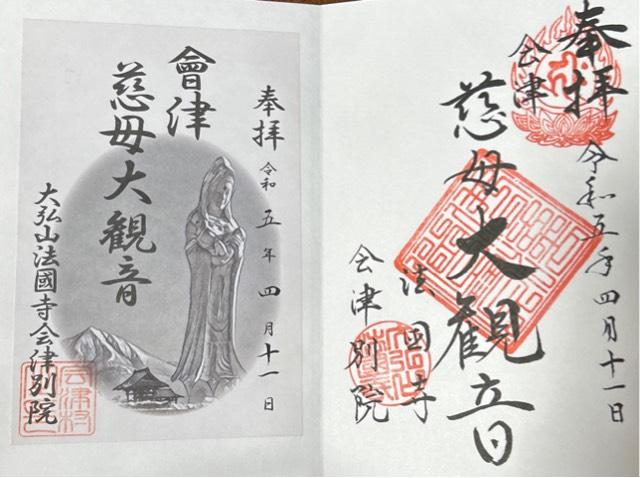 奉拝
会津
慈母大観音
令和五年四月十一日
法国寺
会津別院
奉拝 令和五年四月十一日
會津
慈母大観音
大弘山法國寺会津別院